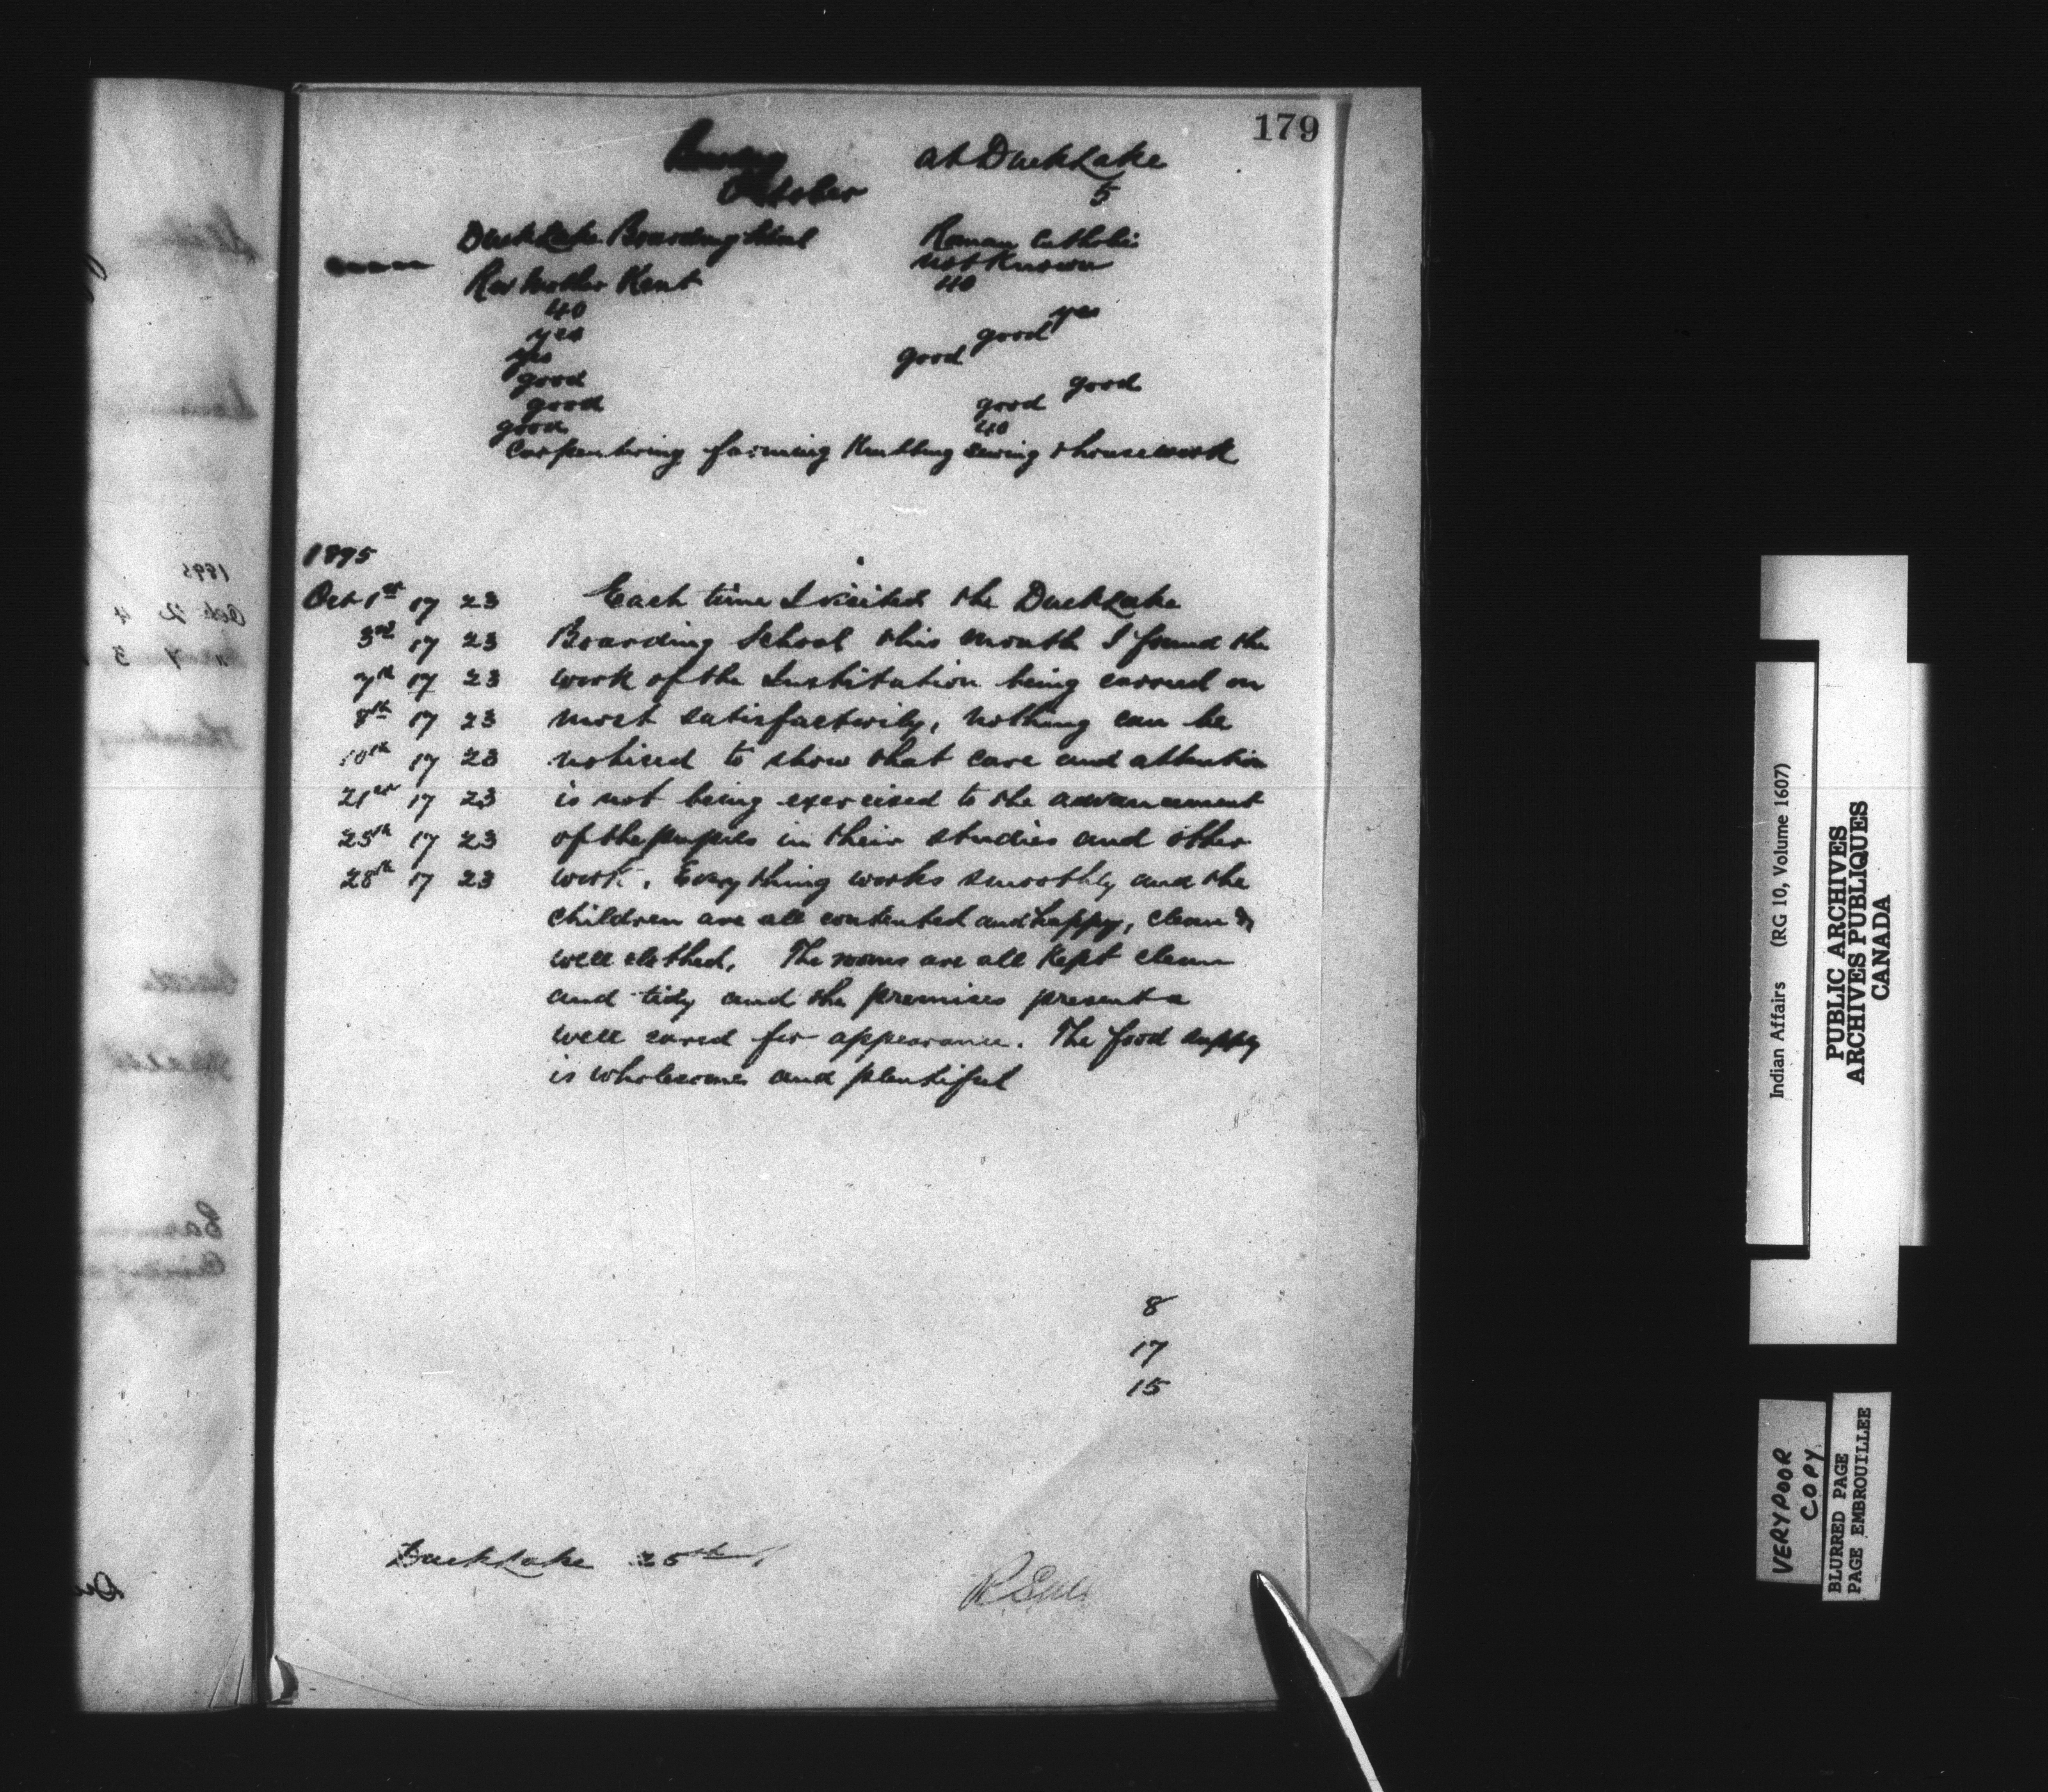 179
Boarding at Duck Lake
October 5
Duck Lake Boarding School Roman Catholic
not Known
Rev Mother Kent 40
40 yes
yes good
yes good
good good
good good
good 40
Carpentering farming Knitting sewing & housework
1895
Oct 1st 17 23 Each time I visited the Duck Lake
3rd 17 23 Boarding School this month I found the
7th 17 23 work of the Institution being carried on
8th 17 23 most satisfactorily, nothing can be
10th 17 23 noticed to show that care and attention
21st 17 23 is not being exercised to the advancement
25th 17 23 of the pupils in their studies and other
28th 17 23 work. Everything works smoothly and the
children are all contented and happy, clean &
well clothed. The rooms are all Kept clean
and tidy and the premises present a
well cared for appearance. The food supply
is wholesome and plentiful
8
17
15
Duck Lake 25th
Indian Affairs (RG 10, Volume 1607)
PUBLIC ARCHIVES
ARCHIVES PUBLIQUES
CANADA
VERY POOR
COPY
BLURRED PAGE
PAGE EMBROUILLEE